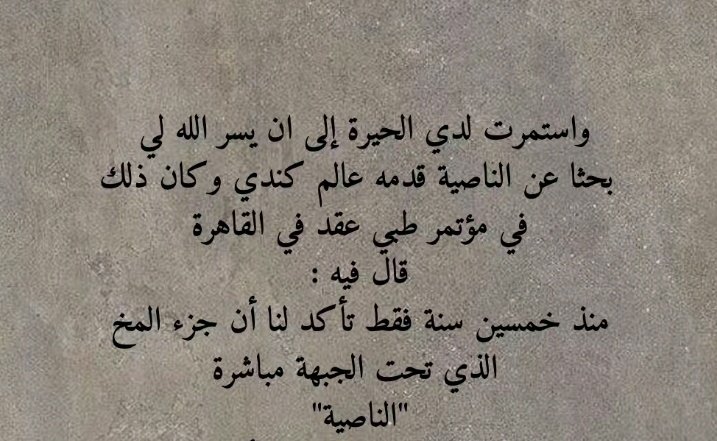 واستمرت لدي الحيرة إلى ان يسر الله لي
بحثا عن الناصية قدمه عالم كندي وكان ذلك
في مؤتمر طبي عقد في القاهرة
قال فيه :
منذ خمسين سنة فقط تأكد لنا أن جزء المخ
الذي تحت الجبهة مباشرة
"الناصية"